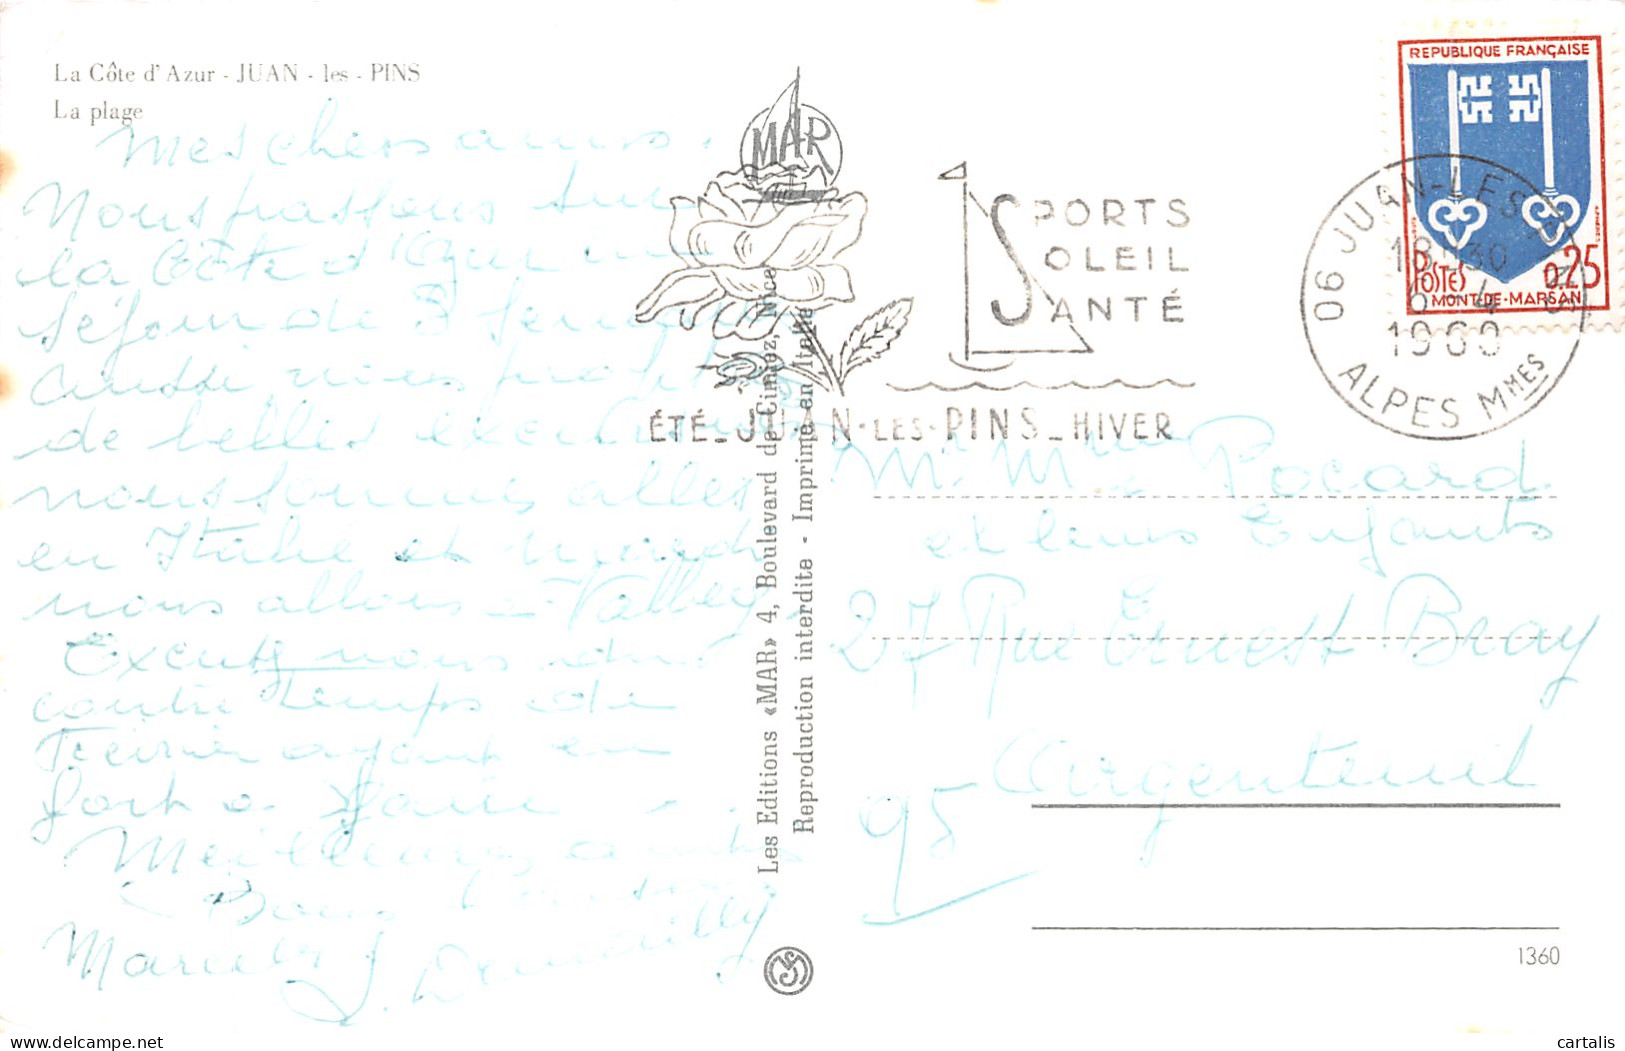 La Côte d'Azur - JUAN - les - PINS
La plage
Mes chers amis.
Nous passons sur
la Côte d'Azur un
séjour de 3 semaines
aussi nous profitons
de belles excursions
nous sommes allés
en Italie et mardi
nous allons à
Excusez nous du
contre temps de
Février ayant eu
fort à faire
Meilleures amitiés
Bons baisers
MAR
SPORTS
SOLEIL
SANTÉ
ÉTÉ - JUAN - LES - PINS - HIVER
Les Editions «MAR» 4, Boulevard de Cimiez, Nice
Reproduction interdite - Imprimé en Italie
REPUBLIQUE FRANÇAISE
POSTES
0,25
MONT-DE-MARSAN
06 JUAN-LES-PINS
18H30
ALPES MMES
Mr. Mme Pocard
et leurs Enfants
27 Rue Ernest Bray
Argenteuil
95
1360
cartalis.com